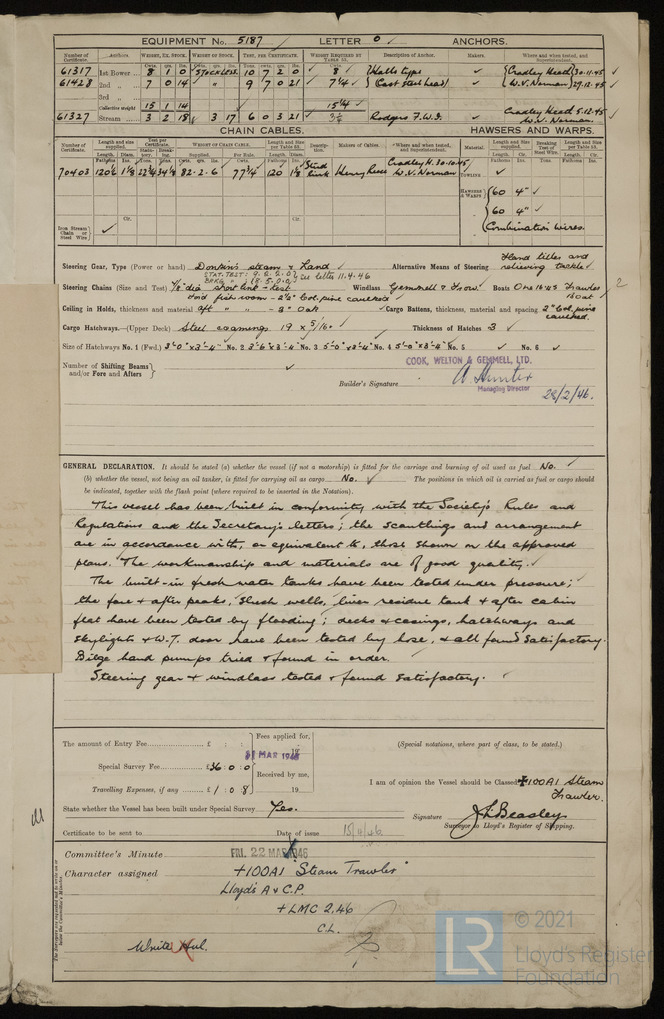 EQUIPMENT No. 5187 LETTER O ANCHORS.
Number of Certificate. Anchors. WEIGHT, EX. STOCK. WEIGHT OF STOCK. TEST, PER CERTIFICATE. WEIGHT REQUIRED BY TABLE 53. Description of Anchor. Makers. Where and when tested, and Superintendent.
Cwts. qrs. lbs. Cwts. qrs. lbs. Tons. cwts. qrs. lbs. Cwts.
61317 1st Bower 8 1 0 STOCKLESS. 10 7 2 0 8 Halls type Cradley Heath 30.11.45
61428 2nd „ 7 0 14 „ 9 7 0 21 7¼ (Cast steel head) W.V. Norman 29.12.45
3rd „
Collective weight 15 1 14 15¼
61327 Stream 3 2 18 3 17 6 0 3 21 Rodgers F.W.I. Cradley Heath 5.12.45
W.V. Norman.
CHAIN CABLES. HAWSERS AND WARPS.
Number of Certificate. Length and size supplied. Test per Certificate. WEIGHT OF CHAIN CABLE. Length and Size per Table 53. Description. Makers of Cables. Where and when tested, and Superintendent. Material. Length and Size supplied. Breaking Test of Steel Wire. Length and Size per Table 53.
Fathoms. Diam. Statutory. Breaking. Supplied. Per Rule. Length. Diam. Fathoms Cir. Tons Fathoms. Cir.
70403 120½ 1⅛ 82.2.6 77¾ 120 1⅛ Stud link Henry Cradley H. 30.10.45 W.V. Norman TOWLING
HAWSERS & WARPS 60 4"
60 4"
Combination wires.
Iron Stream Chain or Steel Wire Cir.
Steering Gear, Type (Power or hand) Donkin's steam & hand Alternative Means of Steering Hand tiller and relieving tackle
STAT. TEST: 9.2.2.0 See letter 11.4.46
Steering Chains (Size and Test) ⅞" dia short link - test Windlass Gemmell & Frow. Boats One 16'4½ Trawler Boat 2
Ceiling in Holds, thickness and material fwd fish room - 2½" Col. pine caulked aft „ „ - 3" Oak Cargo Battens, thickness, material and spacing 2" Col. pine caulked.
Cargo Hatchways.—(Upper Deck) Steel coamings 19 x 5/16" Thickness of Hatches 3
Size of Hatchways No. 1 (Fwd.) 3'-0"x3'-4" No. 2 3'-6"x3'-4" No. 3 5'-0"x3'-4" No. 4 5'-0"x3'-4" No. 5 No. 6
Number of Shifting Beams and/or Fore and Afters
COOK, WELTON & GEMMELL, LTD.
Builder's Signature A. Hunter
Managing Director
28/2/46.
GENERAL DECLARATION. It should be stated (a) whether the vessel (if not a motorship) is fitted for the carriage and burning of oil used as fuel No.
(b) whether the vessel, not being an oil tanker, is fitted for carrying oil as cargo No. The positions in which oil is carried as fuel or cargo should
be indicated, together with the flash point (where required to be inserted in the Notation).
This vessel has been built in conformity with the Society's Rules and
Regulations and the Secretary's letters; the scantlings and arrangement
are in accordance with, or equivalent to, those shown on the approved
plans. The workmanship and materials are of good quality.
The built-in fresh water tanks have been tested under pressure;
the fore & after peaks, slush wells, liver residue tank & after cabin
flat have been tested by flooding; decks & casings, hatchways and
skylights & W.T. door have been tested by hose, & all found satisfactory.
Bilge hand pumps tried & found in order.
Steering gear & windlass tested & found satisfactory.
The amount of Entry Fee £ : : Fees applied for,
MAR 1946 19
Special Survey Fee £36 : 0 : 0 Received by me,
Travelling Expenses, if any £ 1 : 0 : 8 19
(Special notations, where part of class, to be stated.)
I am of opinion the Vessel should be Classed ✠100A1 Steam Trawler.
State whether the Vessel has been built under Special Survey Yes.
Signature J.L. Beasley
Surveyor to Lloyd's Register of Shipping.
Certificate to be sent to Date of issue 15/4/46
Committee's Minute FRI. 22 MAR 1946
Character assigned +100A1 "Steam Trawler"
Lloyd's A & C.P.
+LMC 2.46
C.L.
Write Hul.
LR
© 2021
Lloyd's Register
Foundation